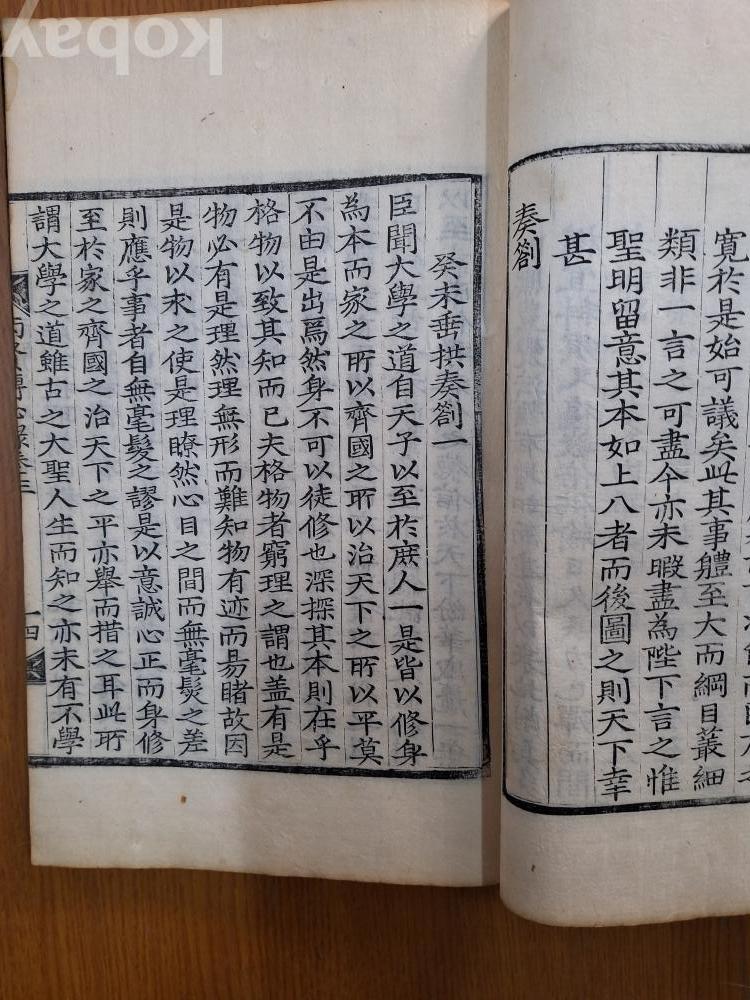 kobay
寬於是始可議矣此其事體至大而綱目叢細
類非一言之可盡今亦未暇盡為陛下言之惟
聖明留意其本如上八者而後圖之則天下幸
甚
奏劄
癸未垂拱奏劄一
臣聞大學之道自天子以至於庶人一是皆以修身
為本而家之所以齊國之所以治天下之所以平莫
不由是出焉然身不可以徒修也深探其本則在乎
格物以致其知而已夫格物者窮理之謂也盖有是
物必有是理然理無形而難知物有迹而易睹故因
是物以求之使是理瞭然心目之間而無毫髮之差
則應乎事者自無毫髮之謬是以意誠心正而身修
至於家之齊國之治天下之平亦舉而措之耳此所
謂大學之道雖古之大聖人生而知之亦未有不學